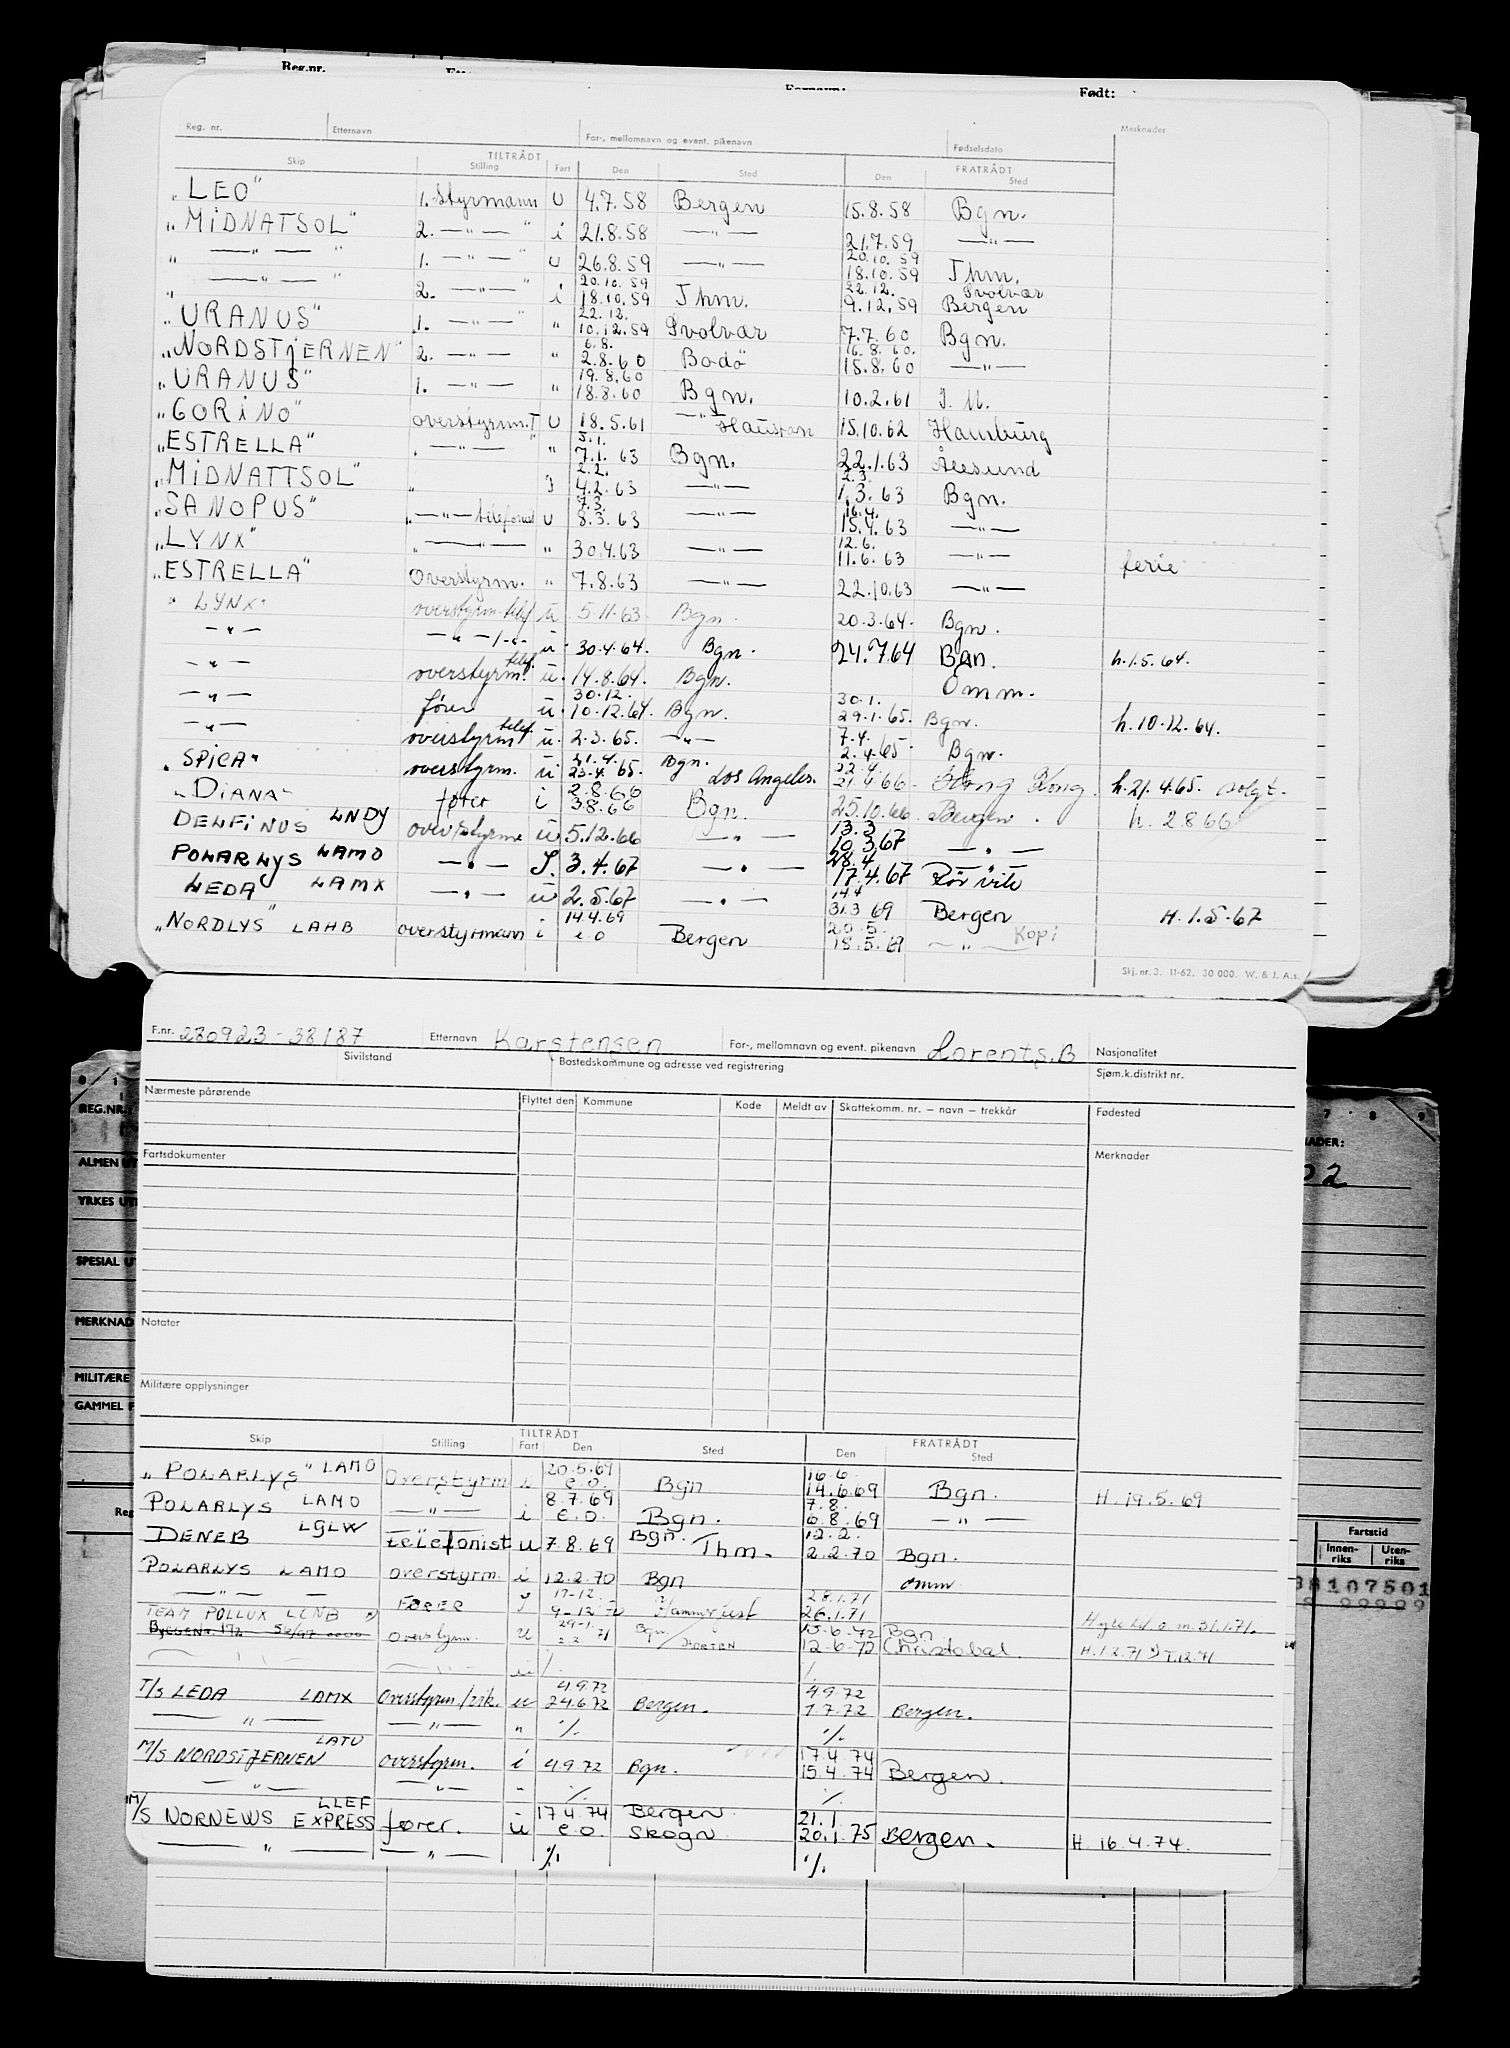 Reg.nr.
Født:
Reg. nr. Etternavn For-, mellomnavn og event. pikenavn Fødselsdato Merknader
TILTRÅDT FRATRÅDT
Skip Stilling Fart Den Sted Den Sted
"LEO" 1. Styrmann U 4.7.58 Bergen 15.8.58 Bgn.
"MIDNATSOL" 2. —"— i 21.8.58 —"— 21.7.59 —"—
" —"— " 1. —"— U 26.8.59 —"— 20.10.59 18.10.59 Thm.
" —"— " 2. —"— i 20.10.59 18.10.59 Thm. 22.12. 9.12.59 Svolvær Bergen
"URANUS" 1. —"— " 22.12. 10.12.59 Svolvær 7.7.60 Bgn.
"NORDSTJERNEN" 2. —"— " 6.8. 2.8.60 Bodö 16.8.60. 15.8.60 —"—
"URANUS" 1. —"— " 19.8.60 18.8.60 Bgn. 10.2.61
"GORINO" overstyrm. U 18.5.61 —"— 15.10.62 Hamburg
"ESTRELLA" —"— " 5.1. 7.1.63 Bgn. 22.1.63 Ålesund
"MIDNATTSOL" " 2.2. 4.2.63 —"— 2.3. 1.3.63 Bgn.
"SANOPUS" —"— telefonist U 7.3. 8.3.63 —"— 16.4. 15.4.63 —"—
"LYNX" —"— " 30.4.63 —"— 12.6. 11.6.63 —"— ferie
"ESTRELLA" Overstyrm. " 7.8.63 —"— 22.10.63 —"—
"LYNX" overstyrm. telef. u 5.11.63 Bgn. 20.3.64. Bgn.
—"— —"—/-"- u. 30.4.64. Bgn. 24.7.64 Bgn. h.1.5.64.
—"— overstyrm. telef. u. 14.8.64. Bgn. Omm.
—"— fører u. 30.12. 10.12.64. Bgn. 30.1. 29.1.65. Bgn. h.10.12.64.
—"— overstyrm telef. u. 2.3.65. —"— 7.4. 2.4.65 Bgn.
"SPICA" overstyrm. u. 21.4. 23.4.65. Bgn. Los Angeles. 22.4. 21.4.66 Hong Kong. h.21.4.65. solgt.
"DIANA" fører i 2.8.66 3.8.66 Bgn. 25.10.66 Bergen. h. 2.8.66
DELFINUS LNDY overstyrm u 5.12.66 —"— 13.3 10.3.67 —"—
POLARLYS LAMO —"— I. 3.4.67 —"— 28.4. 17.4.67 Rörvik
LEDA LAMX —"— u 2.5.67 —"— 14.4 31.3 69 Bergen H.1.5.67
"NORDLYS" LAHB overstyrmann i 14.4.69 e.o Bergen 20.5. 18.5.69 —"— Kopi
Skj. nr. 3. 11-62. 30 000. W. & J. A.s.
F.nr. 280923-38187 Etternavn Karstensen For-, mellomnavn og event. pikenavn Lorents.B Nasjonalitet
Sivilstand Bostedskommune og adresse ved registrering Sjøm.k.distrikt nr.
Nærmeste pårørende Flyttet den Kommune Kode Meldt av Skattekomm. nr. – navn – trekkår Fødested
Fartsdokumenter Merknader
Notater
Militære opplysninger
TILTRÅDT FRATRÅDT
Skip Stilling Fart Den Sted Den Sted
"POLARLYS" LAMO Overstyrm i 20.5.69 e.o. Bgn 16.6. 14.6.69 Bgn. H. 19.5.69
POLARLYS LAMO —"— i 8.7.69 e.o. Bgn. 7.8. 6.8.69 —"—
DENEB LGLW telefonist u 7.8.69 Bgn. Thm. 12.2. 2.2.70 Bgn.
POLARLYS LAMO overstyrm. i 12.2.70 Bgn omm
—"— — FØRER I 17-12. 9-12-70 Hammerfest 28.1.71 26.1.71
TEAM POLLUX LCNB overstyrm. u 29-1. 2.2.71 Bgn. / HORTEN 15-6.72 12-6-72 Bgn Christobal. H.1.2.71
u % %
T/S LEDA LAMX Overstyrm/vik. u 4.9.72 24.6.72 Bergen. 4.9.72 1.7.72 Bergen.
—"— —"— " % %
M/S NORDSTJERNEN LATU overstyrm. i 4.9.72 Bgn. 17.4.74 15.4.74 Bergen.
—"— —"— " % %
M/S NORNEWS EXPRESS LLEF fører. u 17.4.74 e.o. Bergen Skogn 21.1. 20.1.75 Bergen. H. 16.4.74.
—"— —"— % %
REG.NR.
ALMEN UT
YRKES UT
SPESIAL UT
MERKNAD
MILITÆRE
GAMMEL F
Reg
7 8 9
NADER:
02
Fartstid
Innen-riks Uten-riks
38107501
99999